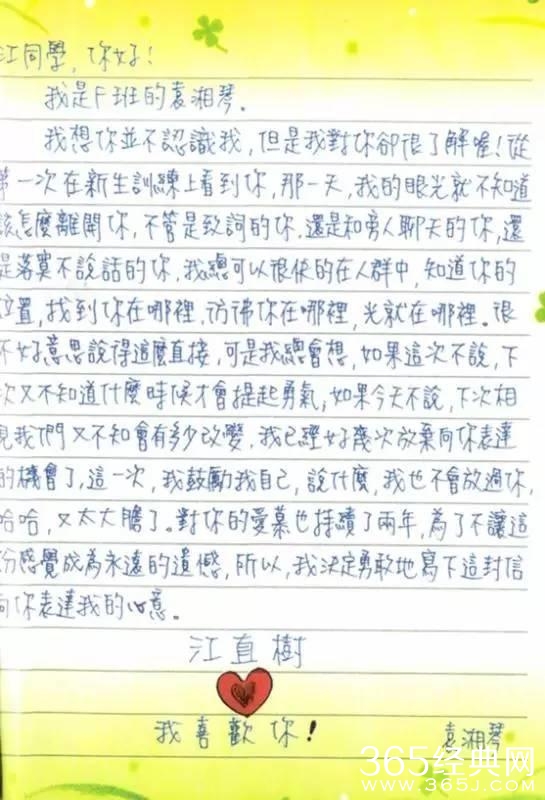 江同學,你好!
我是F班的袁湘琴。
我想你並不認識我,但是我對你卻很了解喔!從
第一次在新生訓練上看到你,那一天,我的眼光就不知道
該怎麼離開你,不管是致詞的你,還是和旁人聊天的你,還
是落寞不說話的你,我總可以很快的在人群中,知道你的
位置,找到你在哪裡,彷彿你在哪裡,光就在哪裡。很
不好意思說得這麼直接,可是我總會想,如果這次不說,下
次又不知道什麼時候才會提起勇氣,如果今天不說,下次相
見我們又不知會有多少改變,我已經好幾次放棄向你表達
的機會了,這一次,我鼓勵我自己,說什麼,我也不會放過你,
哈哈,又太大膽了。對你的愛慕也持續了兩年,為了不讓這
份感覺成為永遠的遺憾,所以,我決定勇敢地寫下這封信
向你表達我的心意。
江直樹
我喜歡你!
袁湘琴
365经典网
www.365J.com